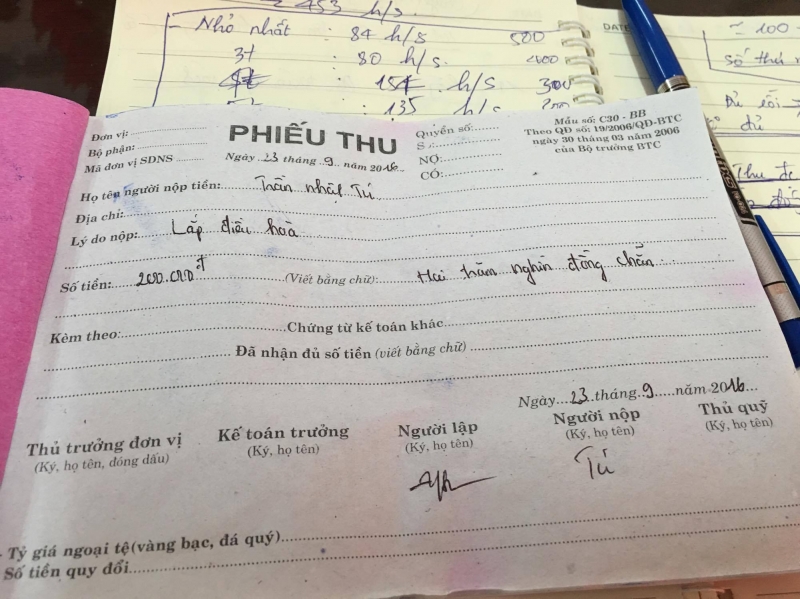 ≈ 453 h/s.
- Nhỏ nhất : 84 h/s 500
3t : 80 h/s. 400
: 154 h/s 300
: 135 h/s 200
DATE
≈ 100
Số thứ
Đủ
đủ
Thu
Đơn vị:
Bộ phận:
Mã đơn vị SDNS
PHIẾU THU
Ngày 23 tháng 9 năm 2016
Quyển số:
S
NỢ:
CÓ:
Mẫu số: C30 - BB
Theo QĐ số: 19/2006/QĐ-BTC
ngày 30 tháng 03 năm 2006
của Bộ trưởng BTC
Họ tên người nộp tiền: Trần nhật Tú
Địa chỉ:
Lý do nộp: Lắp điều hoà
Số tiền: 200.000đ (Viết bằng chữ): Hai trăm nghìn đồng chẵn
Kèm theo: Chứng từ kế toán khác
Đã nhận đủ số tiền (viết bằng chữ)
Ngày 23 tháng 9 năm 2016
Thủ trưởng đơn vị Kế toán trưởng Người lập Người nộp Thủ quỹ
(Ký, họ tên, đóng dấu) (Ký, họ tên) (Ký, họ tên) (Ký, họ tên) (Ký, họ tên)
Tú
- Tỷ giá ngoại tệ(vàng bạc, đá quý)
Số tiền quy đổi